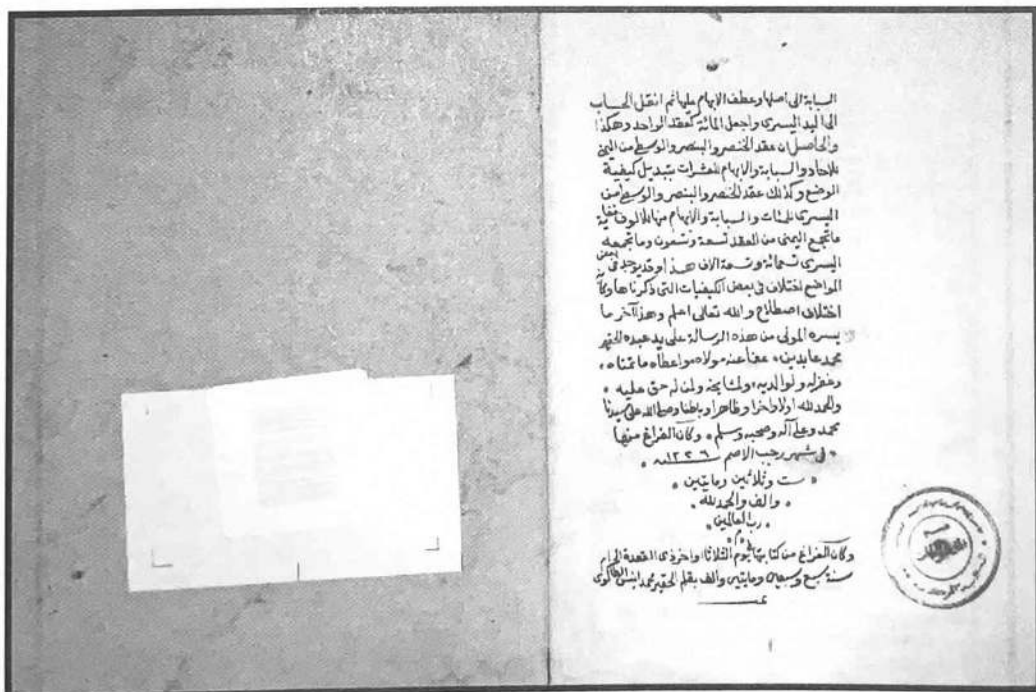 السبابة الى اصلها وعطف الابهام عليها ثم انقل الحساب
الى اليد اليسرى واجعل المائة كعقد الواحد وهكذا
والحاصل ان عقد الخنصر والبنصر والوسطى من اليمنى
للاحاد والسبابة والابهام للعشرات بتبديل كيفية
الوضع وكذلك عقد الخنصر والبنصر والوسطى من
اليسرى للمئات والسبابة والابهام منها للالوف فغاية
ما تجمع اليمنى من العقد تسعة وتسعون وما تجمعه
اليسرى تسعمائة وتسعة الاف هذا وقد يوجد في بعض
المواضع اختلاف في بعض الكيفيات التي ذكرناها وكأنه
اختلاف اصطلاح والله تعالى اعلم وهذا آخر ما
يسره المولى من هذه الرسالة على يد عبده الحقير
محمد عابدين عفا عنه مولاه واعطاه ما تمناه
وغفر له ولوالديه ولمشايخه ولمن له حق عليه
والحمد لله اولا واخرا وظاهرا وباطنا وصلى الله على سيدنا
محمد وعلى آله وصحبه وسلم وكان الفراغ منها
في شهر رجب الاصم ١٢٣٦ سنة
ست وثلاثين ومايتين
والف والحمد لله
رب العالمين
م
وكان الفراغ من كتابتها يوم الثلاثا اواخر ذى القعدة الحرام
سنة سبع وسبعين ومايتين والف بقلم الحقير محمد